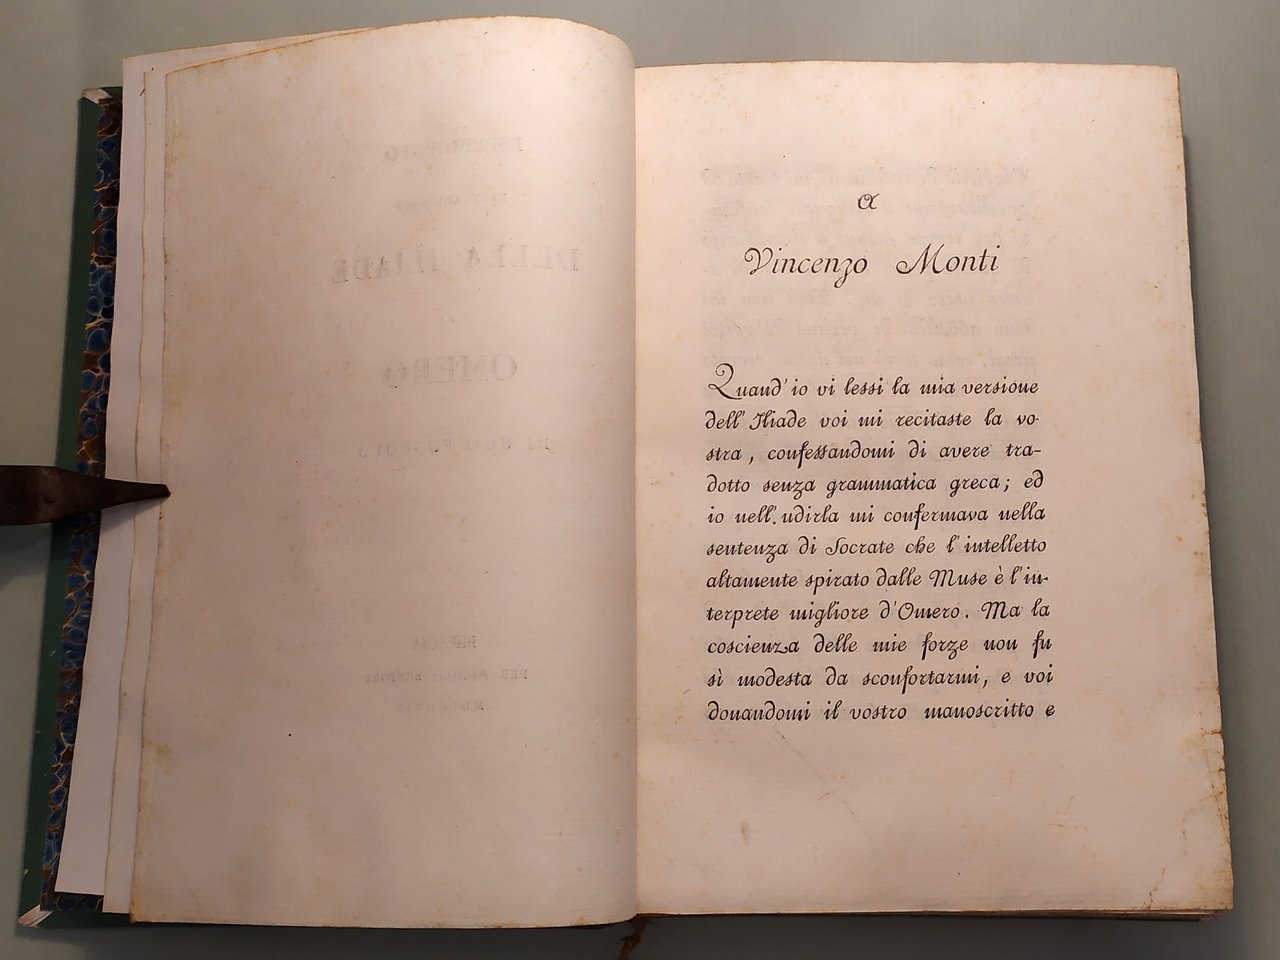 a
Vincenzo Monti
Quand' io vi lessi la mia versione
dell' Iliade voi mi recitaste la vo-
stra, confessandomi di avere tra-
dotto senza grammatica greca; ed
io nell' udirla mi confermava nella
sentenza di Socrate che l' intelletto
altamente spirato dalle Muse è l' in-
terprete migliore d' Omero. Ma la
coscienza delle mie forze non fu
sì modesta da sconfortarmi, e voi
donandomi il vostro manoscritto e